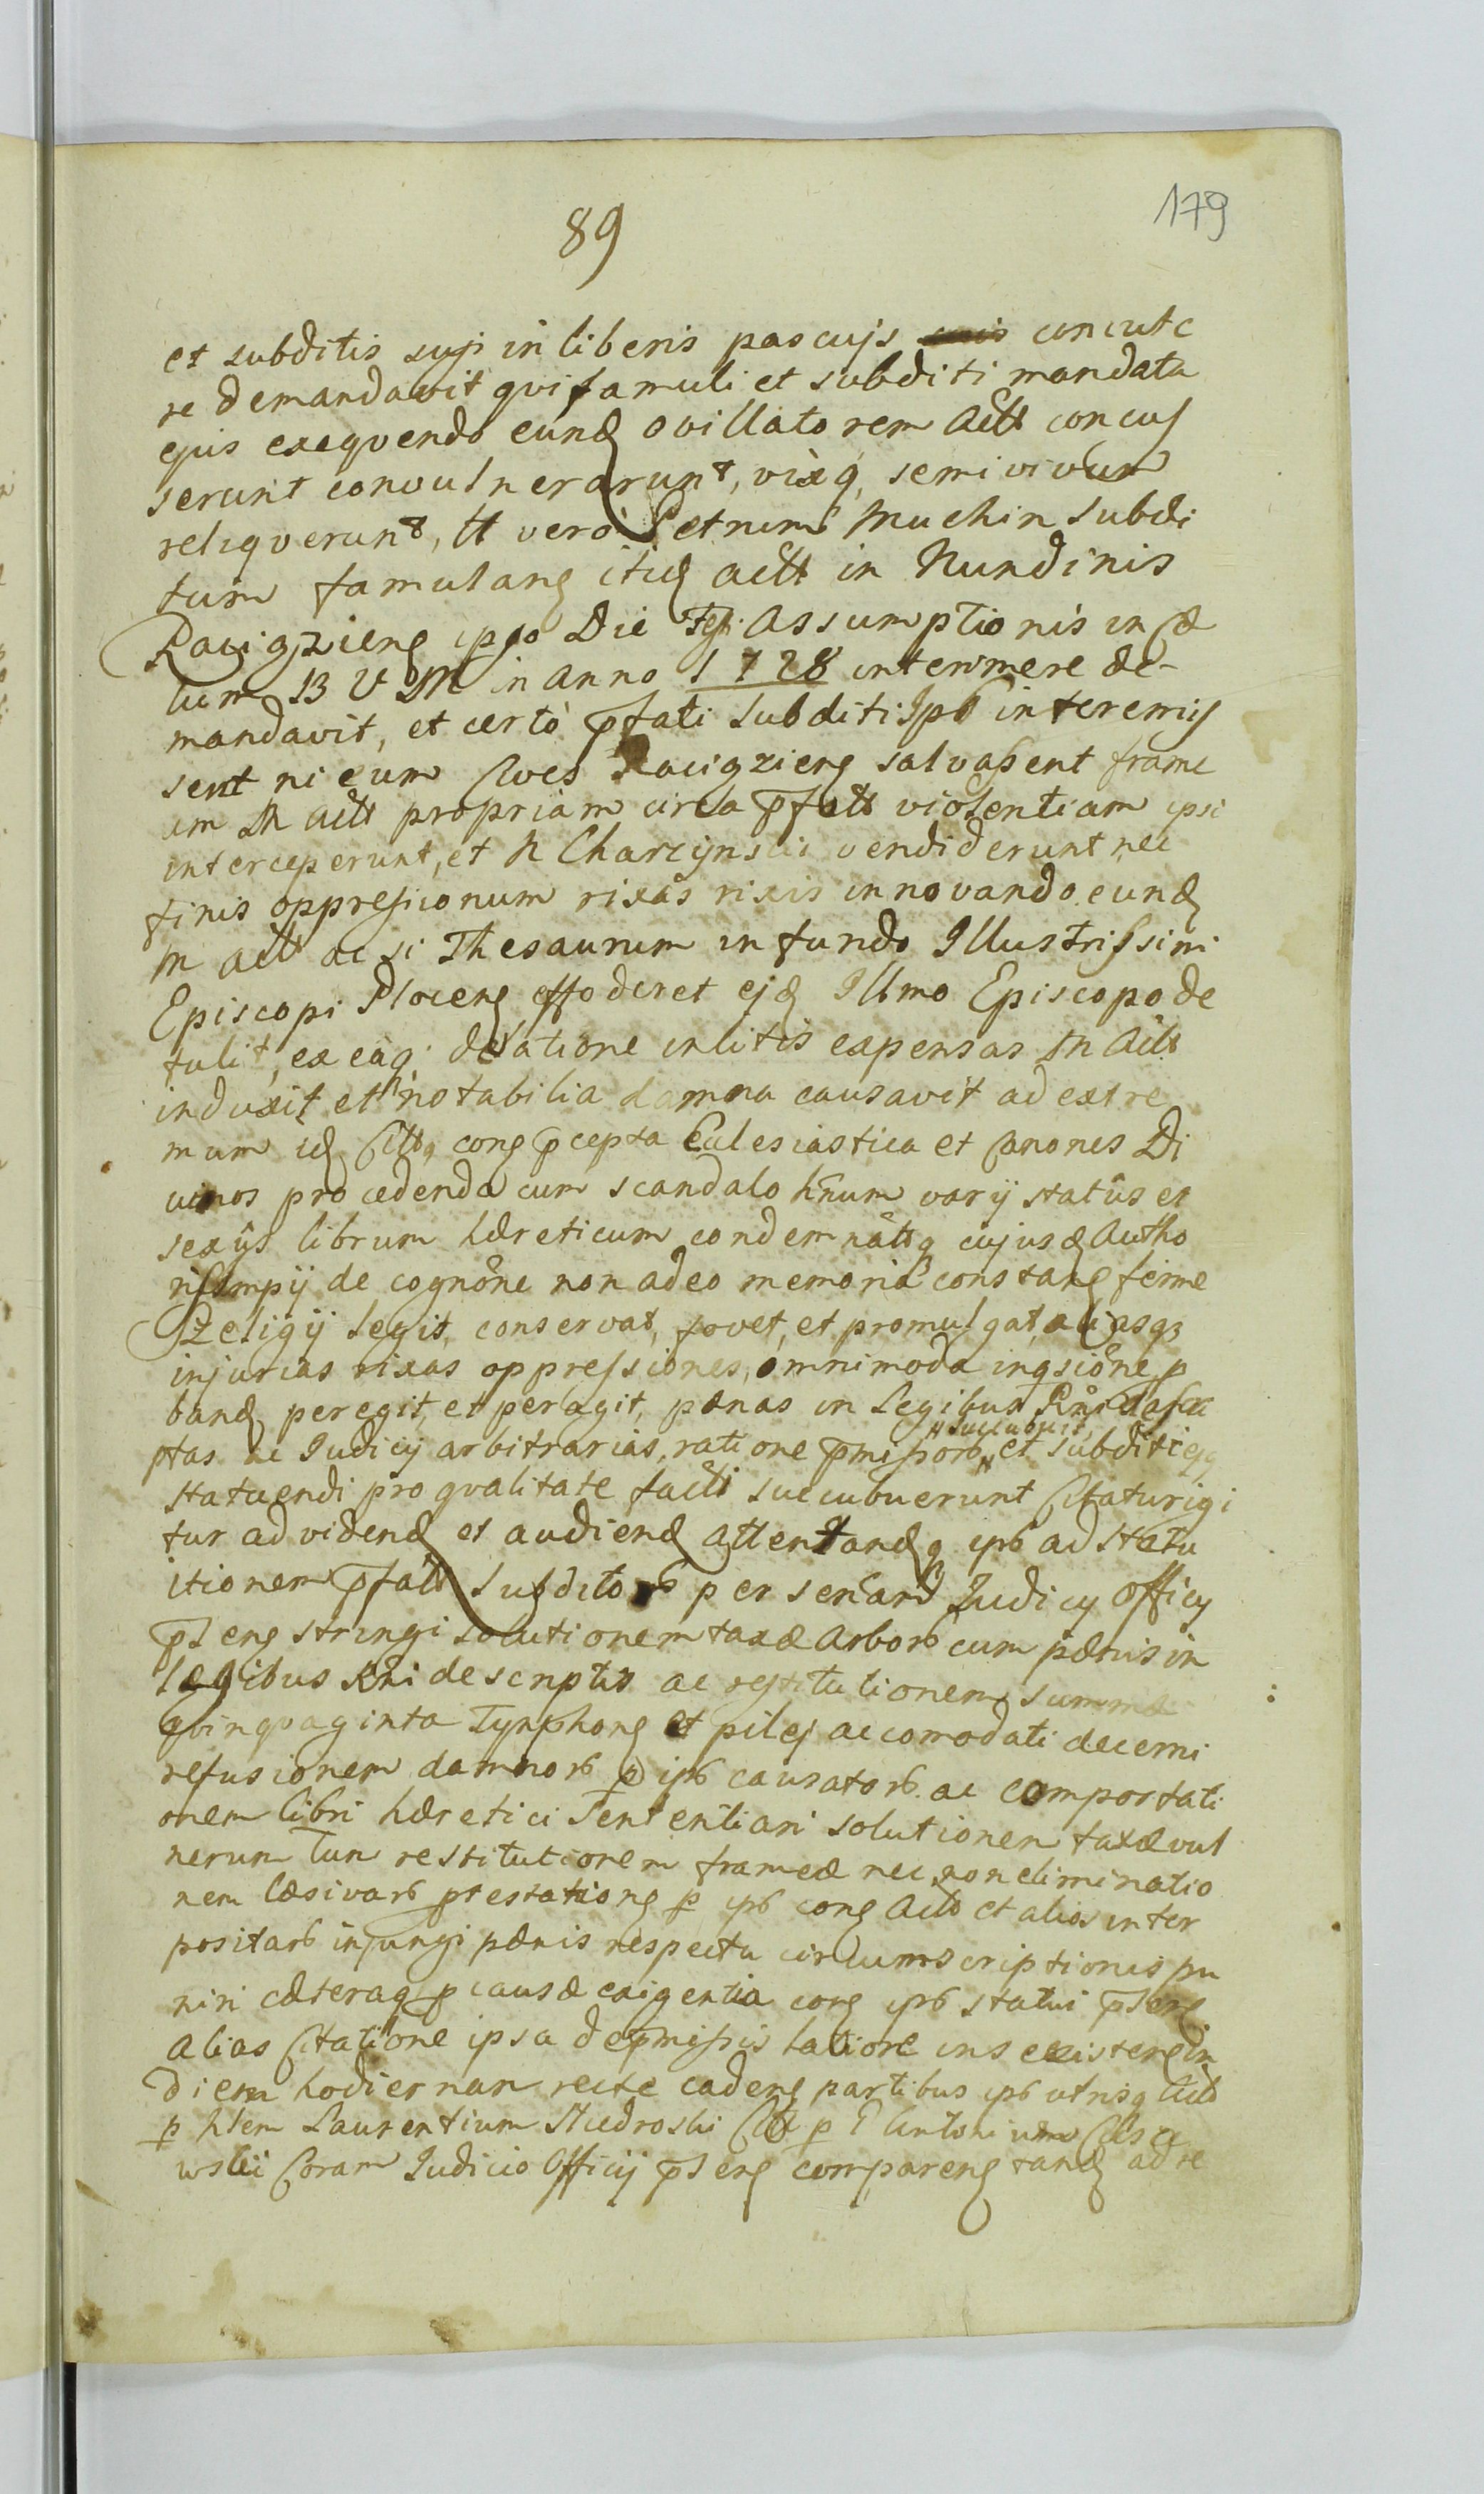 179
89
et subditis suji in liberis pascujs concute
re demandavit qui famuli et subditi mandata
ejus exeqvendo eund ovillatorem Actt concus
serunt convulnerarunt, vixq semivivum
reliqverunt, tt verò Petrum Muchin subdi
tum famulanẽ itid actt in Nundinis
Racigzienẽ ipso Die Festi Assumptionis in cæ
lum B V M in anno 1728 interimere de-
mandavit, et certò p̃fati subditi Ipß interemis
sent ni eum Cives Racigzienẽ salvassent frame
am M actt propriam circa p̃fatt violentiam ipsi
interceperunt, et N Charcijnscii vendiderunt nec
finis oppressionum rixas rixis innovando eund
M actt ac si Thesaurum in fundo Illustrissimi
Episcopi Plocenẽ effoderet ejd Illmo Episcopo de
tulit, ex eaq; delatione in litis expensas M Actt
induxit et notabilia damna causavit ad extre
mum id Cittq conẽ p̃cepta Eclesiastica et Canones Di
vinos procedenda cum scandalo hñum varij statûs et
sexûs librum hæreticum condemnattq cujusd Autho
ris Impij de cognõne non adeo memoria constanẽ ferme
Zeligij legit, conservat, fovet, et promulgat, aliasqz
injurias rixas oppressiones, omnimoda inqsiõne p
band peregit, et peragit, pœnas in Legibus Rñi descri
ptas ac Judicij arbitrarias, ratione p̃missorß succubuit, et subditi ejq
statuendi pro qvalitate facti succubuerunt Citatur igi
tur ad videnđ et audienđ attentanđq ipß ad statu
itionem p̃fatt subditorß per senćarđ Judicij Officij
p̃senẽ stringi solutionem taxæ Arborß cum pænis in
legibus Rñi descriptis ac restitutionem summæ
qvinqvaginta Tynphonẽ et pilej accomodati decerni
refusionem damnorß p ipß causatorß. ac comportati
onem libri hæretici sententiari solutionem taxæ vul
nerum Tum restitutionem frameæ nec non eliminatio
nem læsivarß p̃testationẽ p ipß conẽ Actt et alios inter
positarß injungi pænis respectu circumscriptionis pu
niri cæteraq p causæ exigentia conẽ ipß statui p̃senẽ
Alias Citatione ipsa de p̃missis latiore in se existenẽ in
diem hodiernam recte cadenẽ partibus ipß utrisq Actt
p Nlem Laurentium Mudroski Citt p G Antonium
wskii Coram Judicio Officij p̃senẽ comparenẽ tanđ ad re